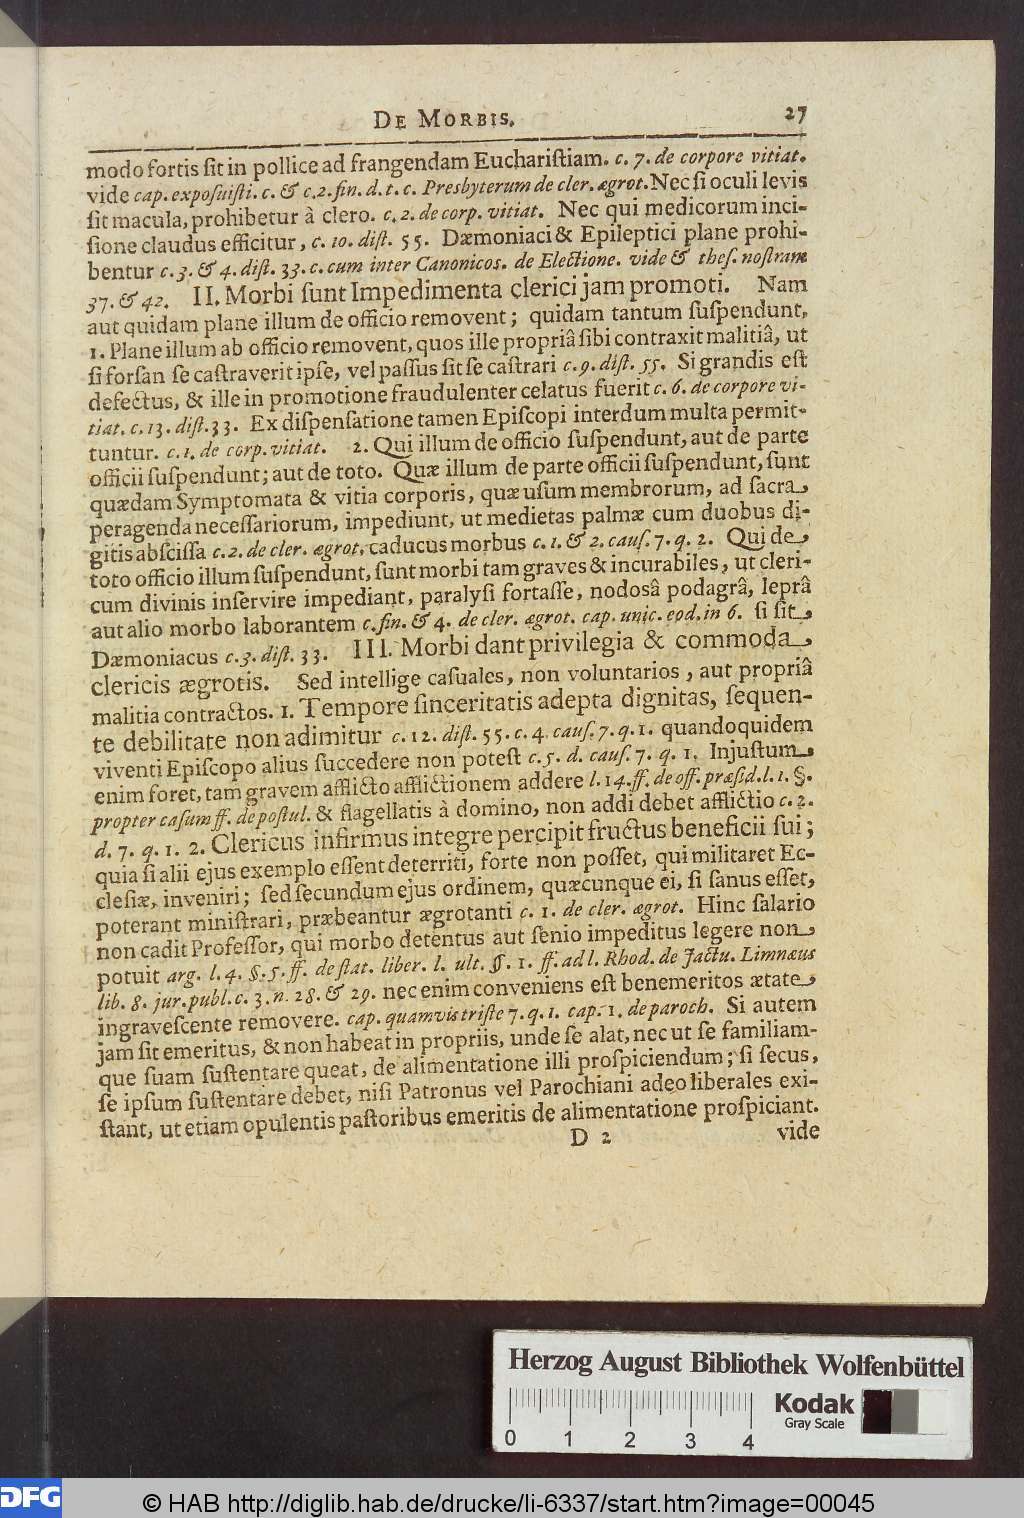 DE MORBIS. 27
modo fortis ſit in pollice ad frangendam Euchariſtiam. c. 7. de corpore vitiat.
vide cap. expoſuiſti. c. & c. 2. fin. d. t. c. Presbyterum de cler. ægrot. Nec ſi oculi levis
ſit macula, prohibetur à clero. c. 2. de corp. vitiat. Nec qui medicorum inci-
ſione claudus efficitur, c. 10. diſt. 55. Dæmoniaci & Epileptici plane prohi-
bentur c. 3. & 4. diſt. 33. c. cum inter Canonicos. de Electione. vide & theſ. noſtram
37. & 42. II. Morbi ſunt Impedimenta clerici jam promoti. Nam
aut quidam plane illum de officio removent; quidam tantum ſuſpendunt,
1. Plane illum ab officio removent, quos ille propriâ ſibi contraxit malitiâ, ut
ſi forſan ſe caſtraverit ipſe, vel paſſus ſit ſe caſtrari c. 9. diſt. 55. Si grandis eſt
defectus, & ille in promotione fraudulenter celatus fuerit c. 6. de corpore vi-
tiat. c. 13. diſt. 33. Ex diſpenſatione tamen Epiſcopi interdum multa permit-
tuntur. c. 1. de corp. vitiat. 2. Qui illum de officio ſuſpendunt, aut de parte
officii ſuſpendunt; aut de toto. Quæ illum de parte officii ſuſpendunt, ſunt
quædam Symptomata & vitia corporis, quæ uſum membrorum, ad ſacra
peragenda neceſſariorum, impediunt, ut medietas palmæ cum duobus di-
gitis abſciſſa c. 2. de cler. ægrot. caducus morbus c. 1. & 2. cauſ. 7. q. 2. Qui de
toto officio illum ſuſpendunt, ſunt morbi tam graves & incurabiles, ut cleri-
cum divinis inſervire impediant, paralyſi fortaſſe, nodosâ podagrâ, leprâ
aut alio morbo laborantem c. fin. & 4. de cler. ægrot. cap. unic. eod. in 6. ſi ſit
Dæmoniacus c. 3. diſt. 33. III. Morbi dant privilegia & commoda
clericis ægrotis. Sed intellige caſuales, non voluntarios, aut propriâ
malitia contractos. 1. Tempore ſinceritatis adepta dignitas, ſequen-
te debilitate non adimitur c. 12. diſt. 55. c. 4. cauſ. 7. q. 1. quandoquidem
viventi Epiſcopo alius ſuccedere non poteſt c. 5. d. cauſ. 7. q. 1. Injuſtum
enim foret, tam gravem afflicto afflictionem addere l. 14. ff. de off. præſid. l. 1. §.
propter caſum ff. de poſtul. & flagellatis à domino, non addi debet afflictio c. 2.
d. 7. q. 1. 2. Clericus infirmus integre percipit fructus beneficii ſui;
quia ſi alii ejus exemplo eſſent deterriti, forte non poſſet, qui militaret Ec-
cleſiæ, inveniri; ſed ſecundum ejus ordinem, quæcunque ei, ſi ſanus eſſet,
poterant miniſtrari, præbeantur ægrotanti c. 1. de cler. ægrot. Hinc ſalario
non cadit Profeſſor, qui morbo detentus aut ſenio impeditus legere non
potuit arg. l. 4. §. 5. ff. de ſtat. liber. l. ult. §. 1. ff. ad l. Rhod. de Jactu. Limnæus
lib. 8. jur. publ. c. 3. n. 28. & 29. nec enim conveniens eſt benemeritos ætate
ingraveſcente removere. cap. quamvis triſte 7. q. 1. cap. 1. de paroch. Si autem
jam ſit emeritus, & non habeat in propriis, unde ſe alat, nec ut ſe familiam-
que ſuam ſuſtentare queat, de alimentatione illi proſpiciendum; ſi ſecus,
ſe ipſum ſuſtentare debet, niſi Patronus vel Parochiani adeo liberales exi-
ſtant, ut etiam opulentis paſtoribus emeritis de alimentatione proſpiciant.
D 2 vide
Herzog August Bibliothek Wolfenbüttel
Kodak
Gray Scale
0 1 2 3 4
DFG © HAB http://diglib.hab.de/drucke/li-6337/start.htm?image=00045